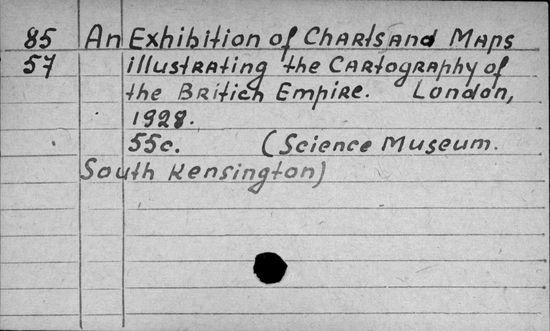 85 An Exhibition of Charts and Maps
57 illustrating the Cartography of
the Britich Empire. London,
1928.
55c. (Science Museum.
South Kensington)